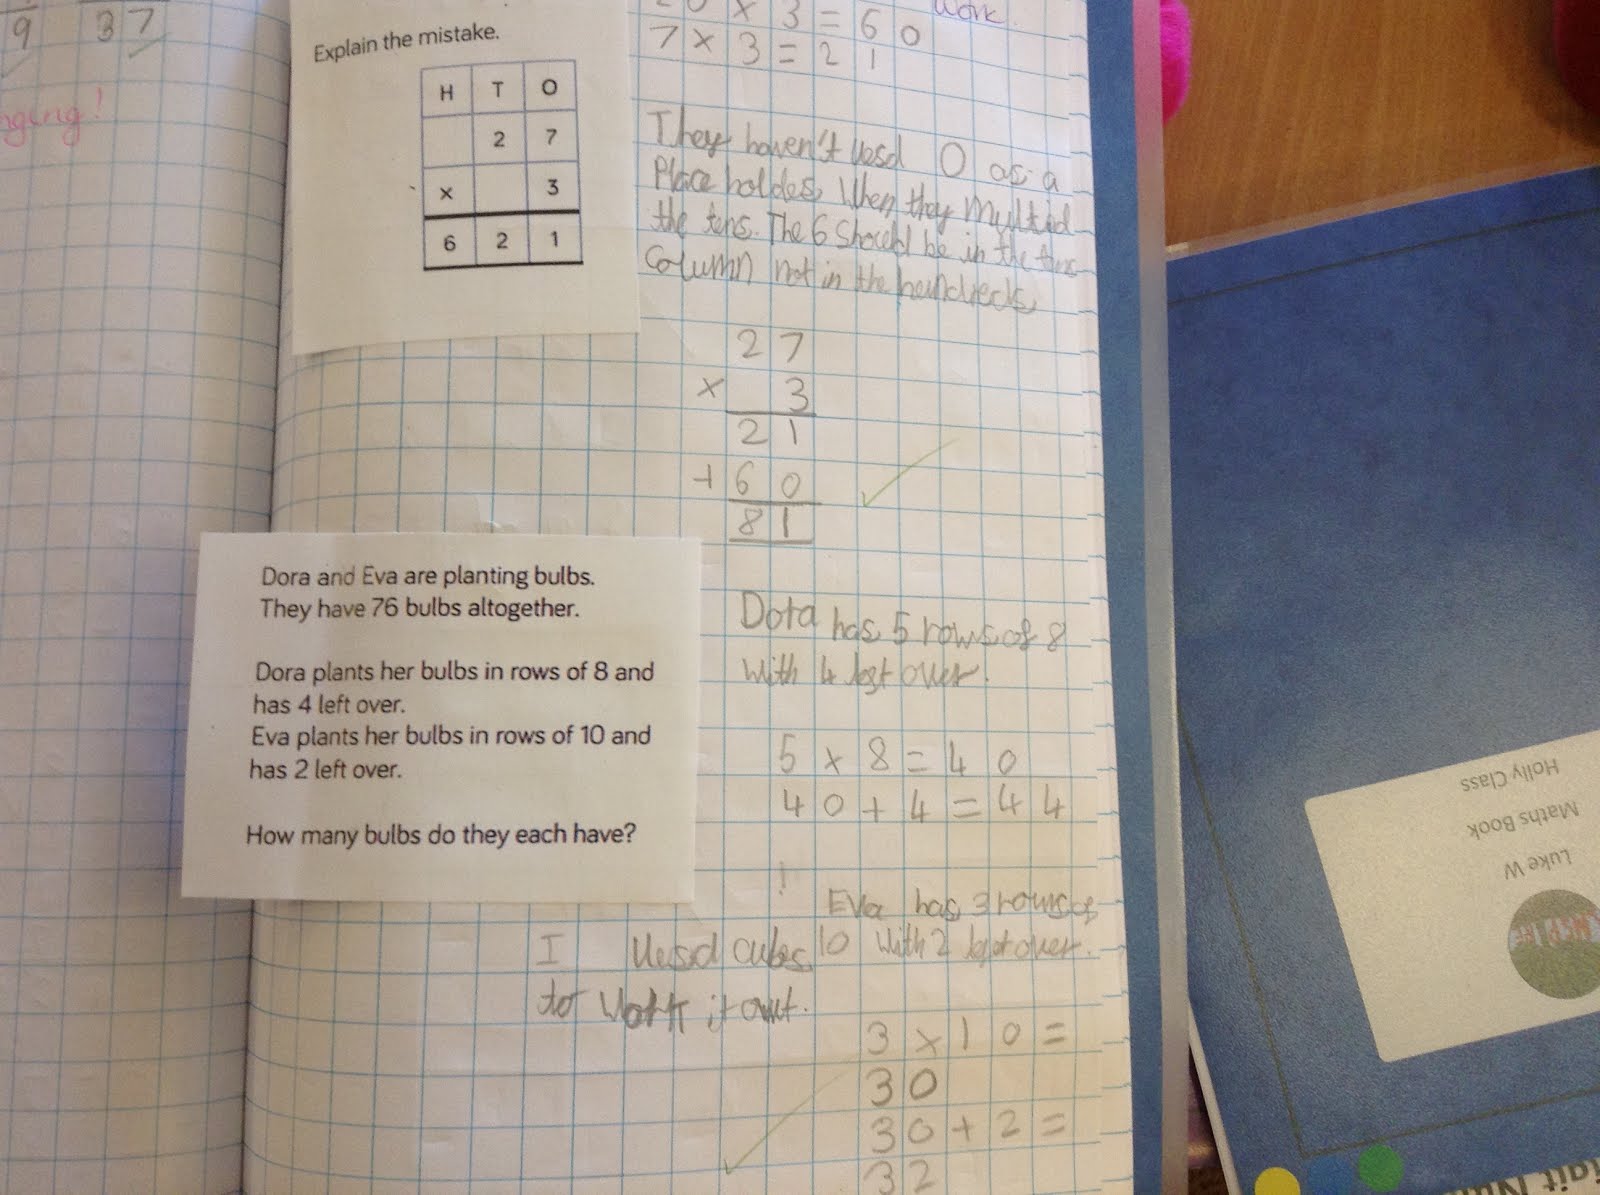 9 37
nging!
Explain the mistake.
H T O
2 7
x 3
6 2 1
20 x 3 = 60
work.
7 x 3 = 21
They haven't uesd 0 as a
Place holder, When they
the tens. The 6 should be in the tens
Column not in the hundreds
27
x 3
21
+60
81
Dora and Eva are planting bulbs.
They have 76 bulbs altogether.
Dora plants her bulbs in rows of 8 and
has 4 left over.
Eva plants her bulbs in rows of 10 and
has 2 left over.
How many bulbs do they each have?
Dora has 5 rows of 8
with 4 left over.
5 x 8 = 40
40 + 4 = 44
Eva has 3 rows of
10 with 2 left over.
I uesd cubes
to work it out.
3 x 10 =
30
30 + 2 =
32
Luke W
Maths Book
Holly Class